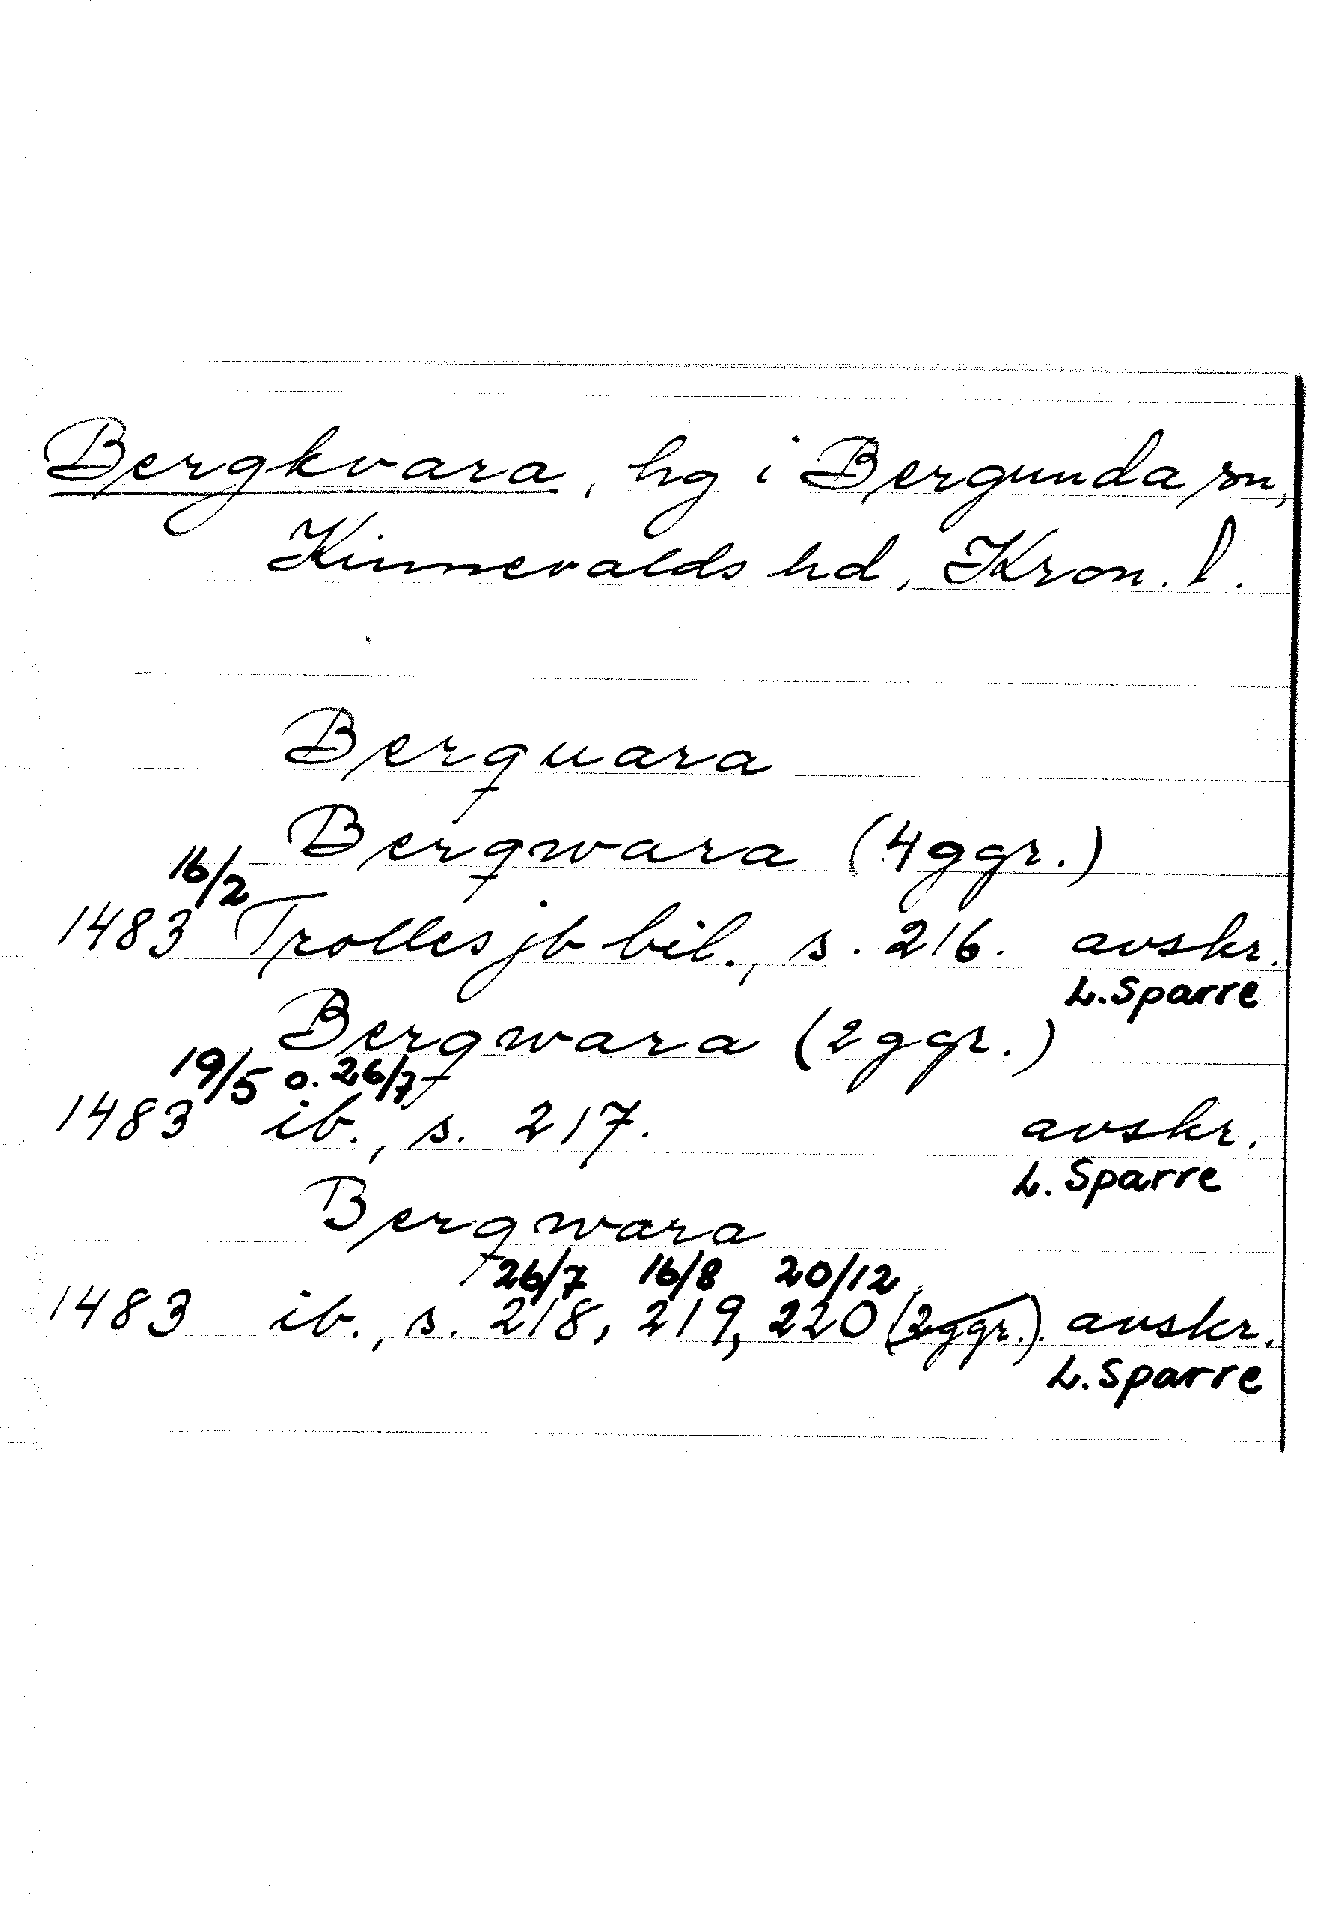 Bergkvara, hg i Bergunda sn,
Kinnevalds hd, Kron. l.
Berquara
Berqwara (4ggr.)
16/2
1483 Trolles jb bil., s. 216. avskr.
L. Sparre
Berqwara (2ggr.)
19/5 o. 26/7
1483 ib., s. 217. avskr.
L. Sparre
Berqwara
26/7 16/8 20/12
1483 ib., s. 218, 219, 220 (2ggr.). avskr.
L. Sparre